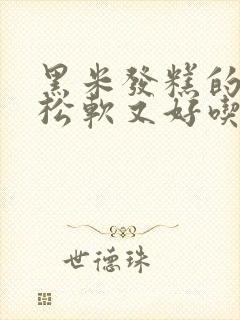 黑米發糕的
松軟又好喫
世德珠